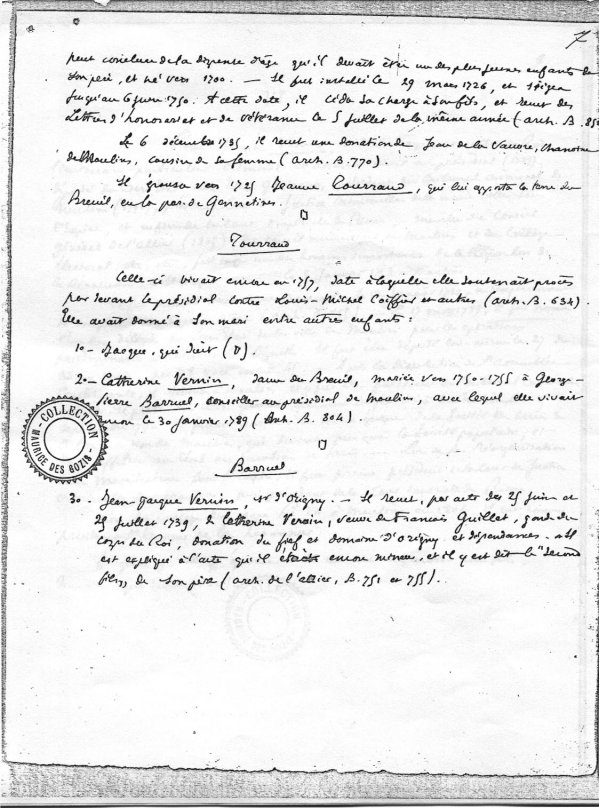 7
peut conclure de la dispense d'âge qu'il devait être un des plus jeunes enfants de
son père, et né vers 1700. — Il fut installé le 29 mars 1726, et siégea
jusqu'au 6 juin 1750. A cette date, il céda sa charge à son fils, et reçut des
Lettres d'honorariat et de vétérance le 5 juillet de la même année (arch. B. 850
Le 6 décembre 1735, il reçut une donation de Jean de la Vauvre, chanoine
de Moulins, cousin de sa femme (arch. B. 770).
Il épousa vers 1725 Jeanne Tourraud, qui lui apporta la terre du
Breuil, en la par. de Gennetines.
Tourraud
Celle-ci vivait encore en 1757, date à laquelle elle soutenait procès
par devant le présidial contre Louis-Michel Coiffier et autres (arch. B. 634).
Elle avait donné à son mari entre autres enfants :
1o - Jacques, qui suit (V).
2o - Catherine Vernin, dame du Breuil, mariée vers 1750-1755 à George-
Pierre Barruel, conseiller au présidial de Moulins, avec lequel elle vivait
encore le 30 janvier 1789 (Arch. B. 804).
Barruel
3o - Jean-Jacques Vernin, sr d'Origny. — Il reçut, par acte des 25 juin et
25 juillet 1739, de Catherine Vernin, veuve de François Guillet, garde du
corps du Roi, donation du fief et domaine d'Origny et dépendances. Il
est expliqué à l'acte qu'il était encore mineur, et il y est dit le "second
fils" de son père (arch. de l'allier, B. 751 et 755).
COLLECTION
MAURICE DES BOZIS